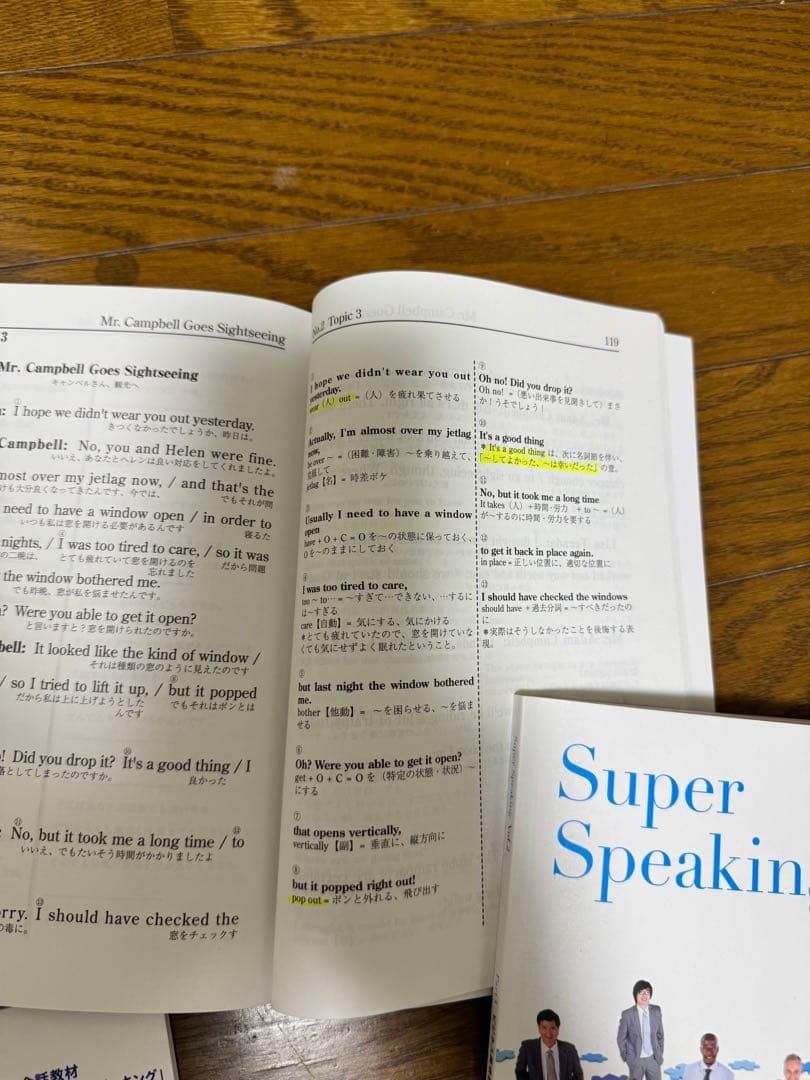 Mr. Campbell Goes Sightseeing
3
Mr. Campbell Goes Sightseeing
キャンベルさん、観光へ
①
I hope we didn't wear you out yesterday.
きつくなかったでしょうか、昨日は。
Campbell: No, you and Helen were fine.
いいえ、あなたとヘレンは良い対応をしてくれましたよ。
most over my jetlag now, / and that's the
けも大分良くなってきたんです、今では、 でもそれが問
need to have a window open / in order to
いつも私は窓を開ける必要があるんです 寝るた
④
nights, / I was too tired to care, / so it was
の二晩は、 とても疲れていて窓を開けるのを だから問題
忘れました
the window bothered me.
でも昨晩、窓が私を悩ませたんです。
? Were you able to get it open?
と言いますと？窓を開けられたのですか。
bell: It looked like the kind of window /
それは種類の窓のように見えたのです
⑧
/ so I tried to lift it up, / but it popped
だから私は上に上げようとした でもそれはポンとは
んです
! Did you drop it? It's a good thing / I
落としてしまったのですか。 良かった
⑪ ⑫
No, but it took me a long time / to
いいえ、でもたいそう時間がかかりましたよ
⑬
rry. I should have checked the
の毒に。 窓をチェックす
No.2 Topic 3
119
I hope we didn't wear you out
yesterday.
wear（人）out =（人）を疲れ果てさせる
Actually, I'm almost over my jetlag
now,
be over ~ =（困難・障害）～を乗り越えて、
jetlag【名】= 時差ボケ
Usually I need to have a window
open
have + O + C = O を～の状態に保っておく、
O を～のままにしておく
I was too tired to care,
too ~ to… = ～すぎて…できない、…するに
は～すぎる
care【自動】= 気にする、気にかける
＊とても疲れていたので、窓を開けていな
くても気にせずよく眠れたということ。
⑤
but last night the window bothered
me.
bother【他動】= ～を困らせる、～を悩ま
せる
⑥
Oh? Were you able to get it open?
get + O + C = O を（特定の状態・状況）～
にする
⑦
that opens vertically,
vertically【副】= 垂直に、縦方向に
⑧
but it popped right out!
pop out = ポンと外れる、飛び出す
⑨
Oh no! Did you drop it?
Oh no! =（悪い出来事を見聞きして）まさ
か！うそでしょう！
⑩
It's a good thing
＊ It's a good thing は、次に名詞節を伴い、
「～してよかった、～は幸いだった」の意。
⑪
No, but it took me a long time
It takes（人）+ 時間・労力 + to ~ =（人）
が～するのに時間・労力を要する
⑫
to get it back in place again.
in place = 正しい位置に、適切な位置に
⑬
I should have checked the windows
should have + 過去分詞 = ～すべきだったの
に
＊実際はそうしなかったことを後悔する表
現。
Super
Speaking
Super Speaking Vol.2
会話教材
キング」